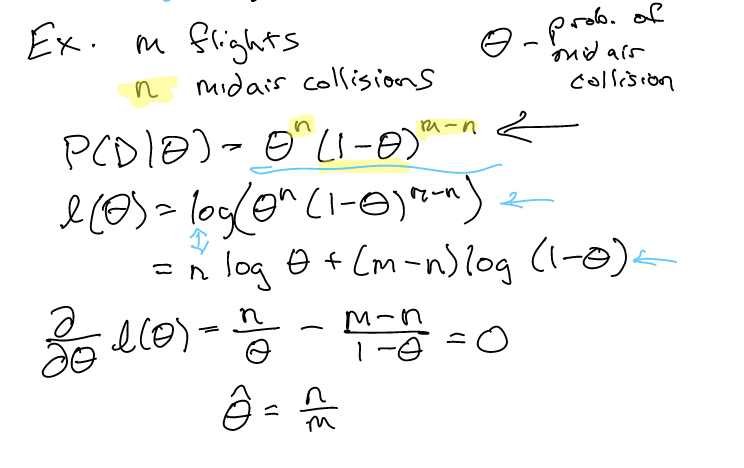 Ex. m flights
θ - prob. of
midair
collision
n midair collisions
P(D|θ) = θ^n (1-θ)^{m-n} ←
l(θ) = log(θ^n (1-θ)^{m-n}) ←
= n log θ + (m-n) log (1-θ) ←
∂/∂θ l(θ) = n/θ - (m-n)/(1-θ) = 0
θ̂ = n/m